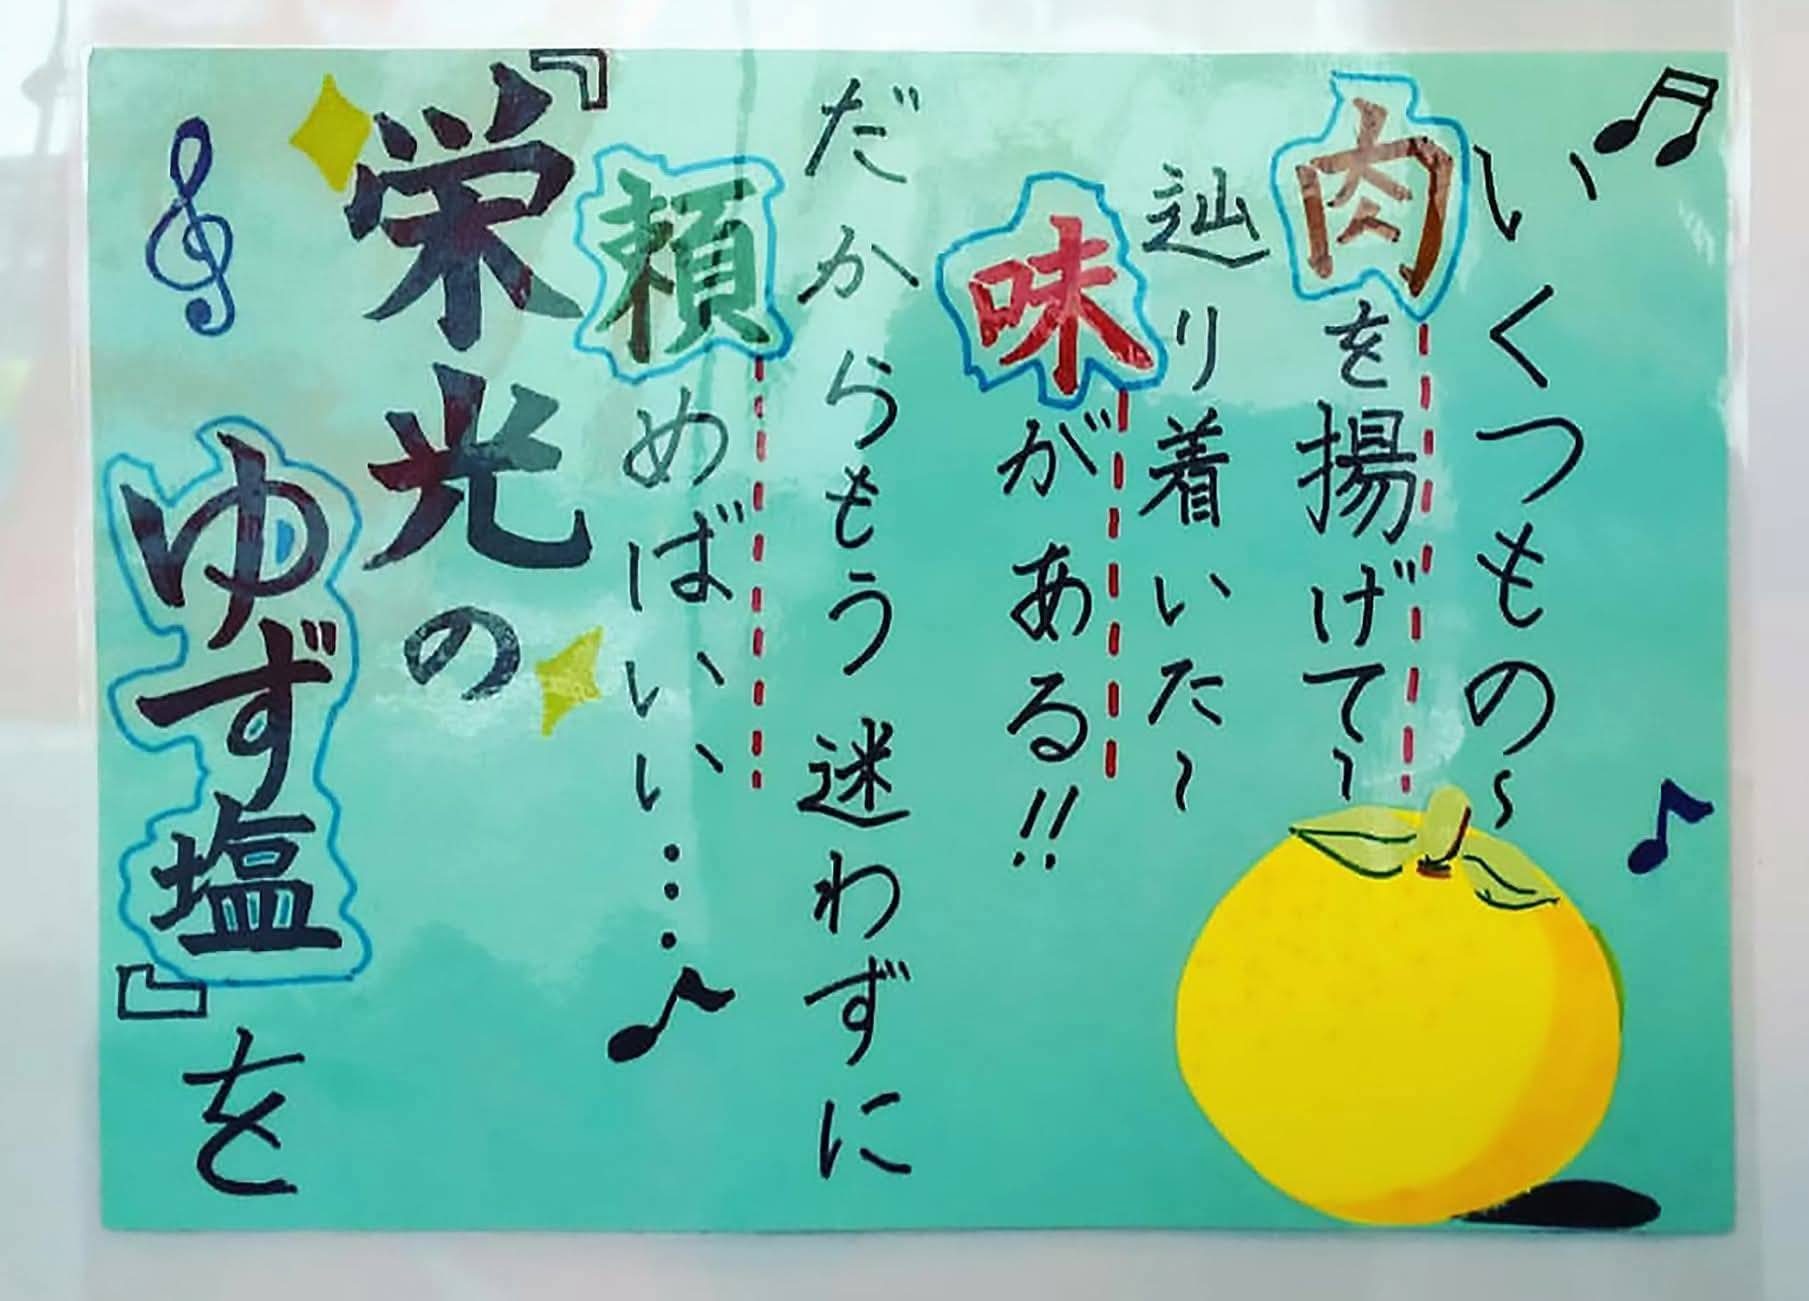 いくつもの〜
肉を揚げて〜
辿り着いた〜
味がある!!
だからもう迷わずに
頼めばいい…
『栄光の
ゆず塩』を